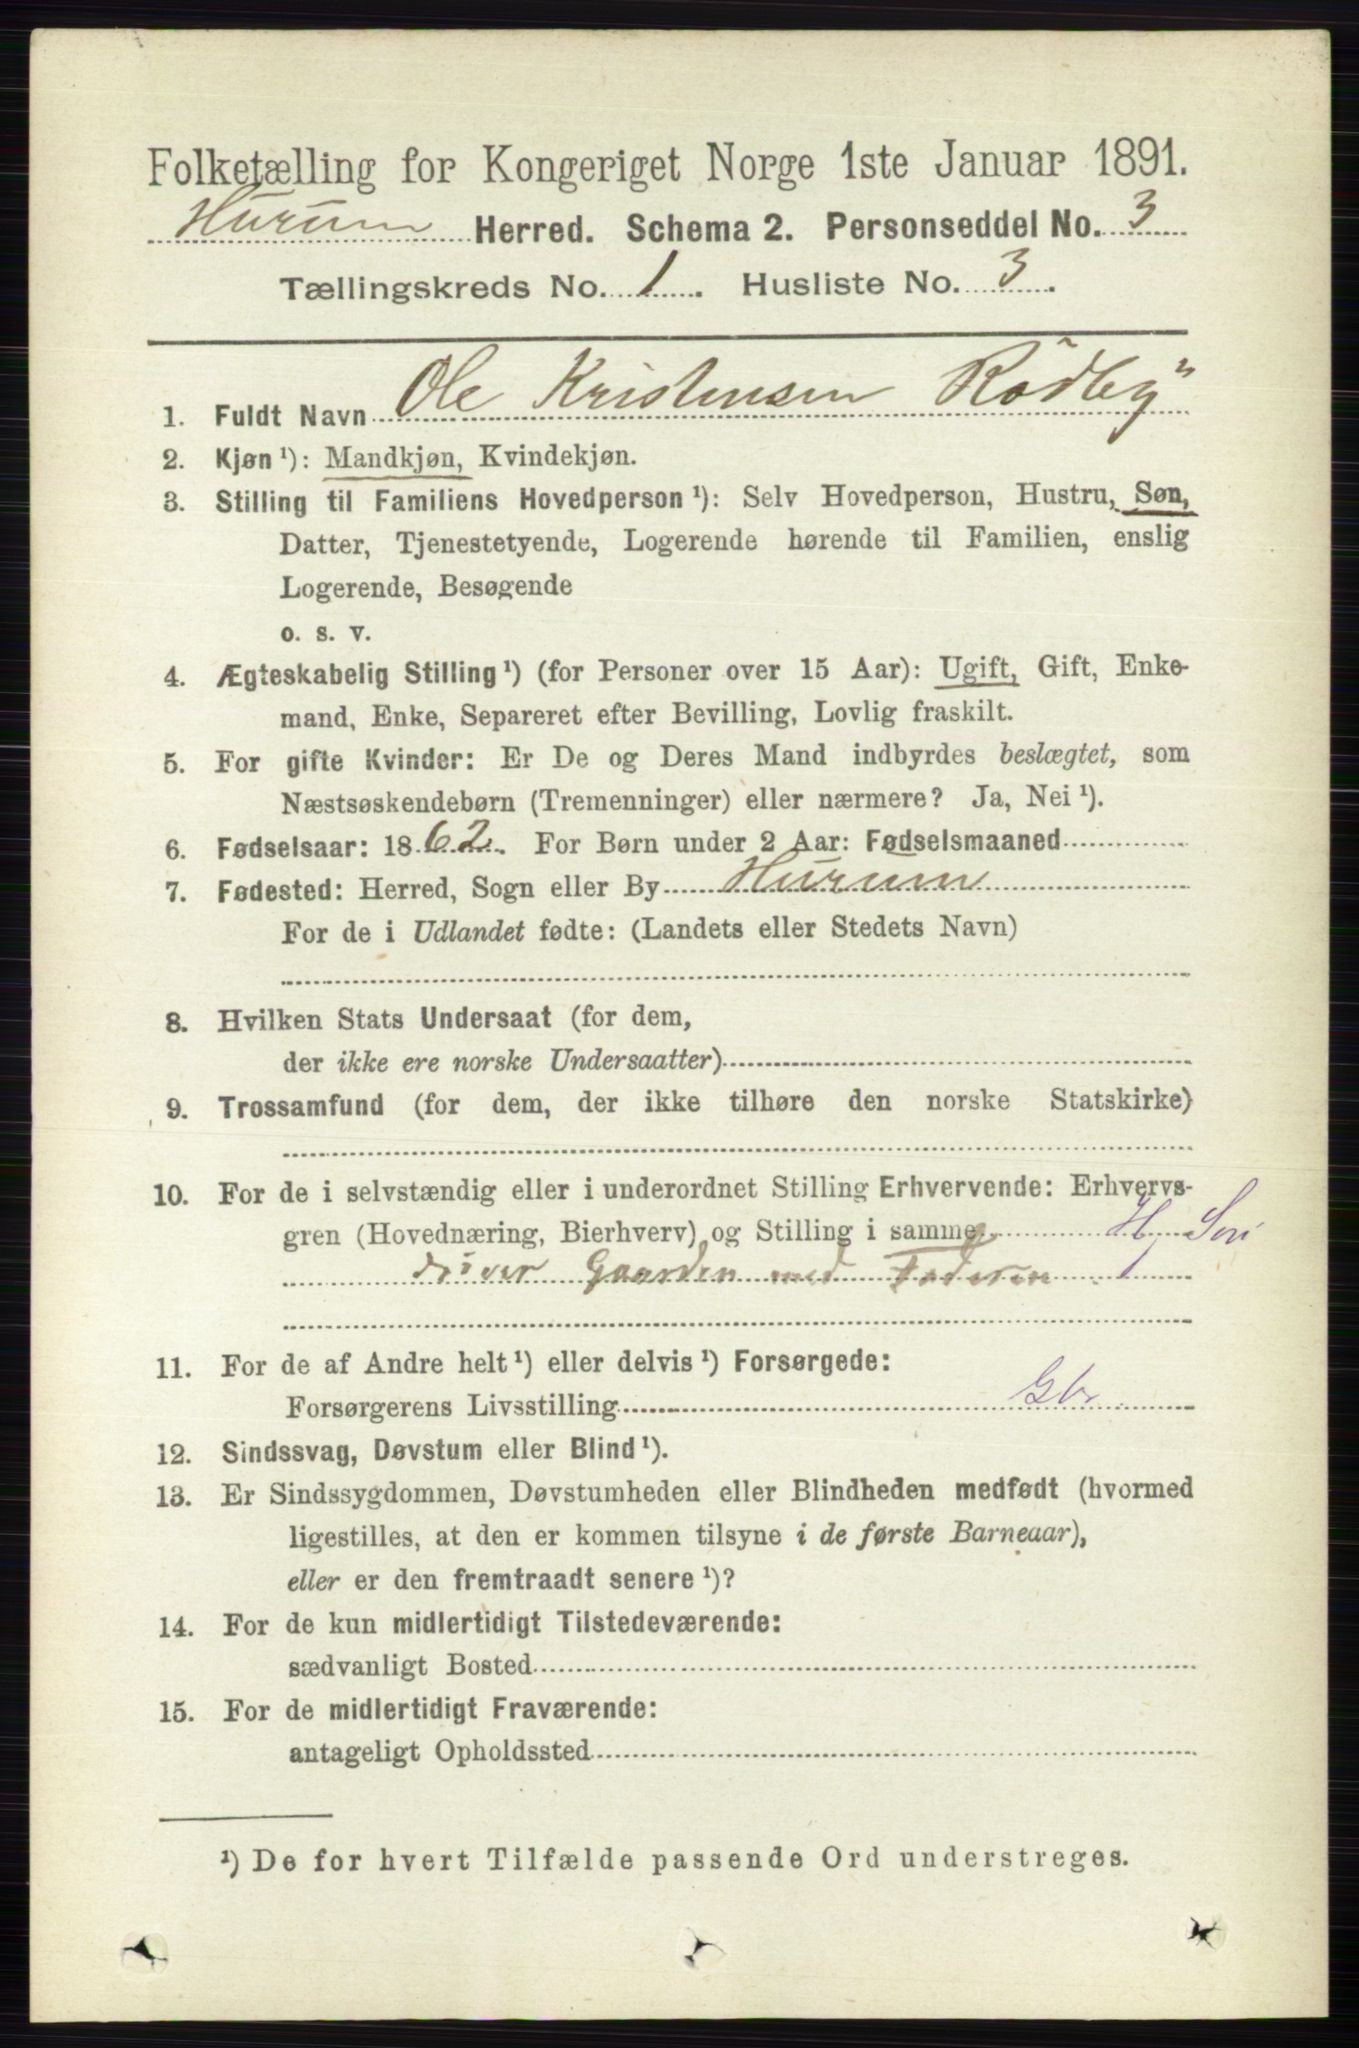 Folketælling for Kongeriget Norge 1ste Januar 1891.
Hurum Herred. Schema 2. Personseddel No. 3
Tællingskreds No. 1. Husliste No. 3.
1. Fuldt Navn Ole Kristensen Rödby
2. Kjøn ¹): Mandkjøn, Kvindekjøn.
3. Stilling til Familiens Hovedperson ¹): Selv Hovedperson, Hustru, Søn,
Datter, Tjenestetyende, Logerende hørende til Familien, enslig
Logerende, Besøgende
o. s. v.
4. Ægteskabelig Stilling ¹) (for Personer over 15 Aar): Ugift, Gift, Enke-
mand, Enke, Separeret efter Bevilling, Lovlig fraskilt.
5. For gifte Kvinder: Er De og Deres Mand indbyrdes beslægtet, som
Næstsøskendebørn (Tremenninger) eller nærmere? Ja, Nei ¹).
6. Fødselsaar: 1862. For Børn under 2 Aar: Fødselsmaaned
7. Fødested: Herred, Sogn eller By Hurum
For de i Udlandet fødte: (Landets eller Stedets Navn)
8. Hvilken Stats Undersaat (for dem,
der ikke ere norske Undersaatter)
9. Trossamfund (for dem, der ikke tilhøre den norske Statskirke)
10. For de i selvstændig eller i underordnet Stilling Erhvervende: Erhvervs-
gren (Hovednæring, Bierhverv) og Stilling i samme H, Søn
driver Gaarden med Faderen
11. For de af Andre helt ¹) eller delvis ¹) Forsørgede:
Forsørgerens Livsstilling Gbr.
12. Sindssvag, Døvstum eller Blind ¹).
13. Er Sindssygdommen, Døvstumheden eller Blindheden medfødt (hvormed
ligestilles, at den er kommen tilsyne i de første Barneaar),
eller er den fremtraadt senere ¹)?
14. For de kun midlertidigt Tilstedeværende:
sædvanligt Bosted
15. For de midlertidigt Fraværende:
antageligt Opholdssted
¹) De for hvert Tilfælde passende Ord understreges.